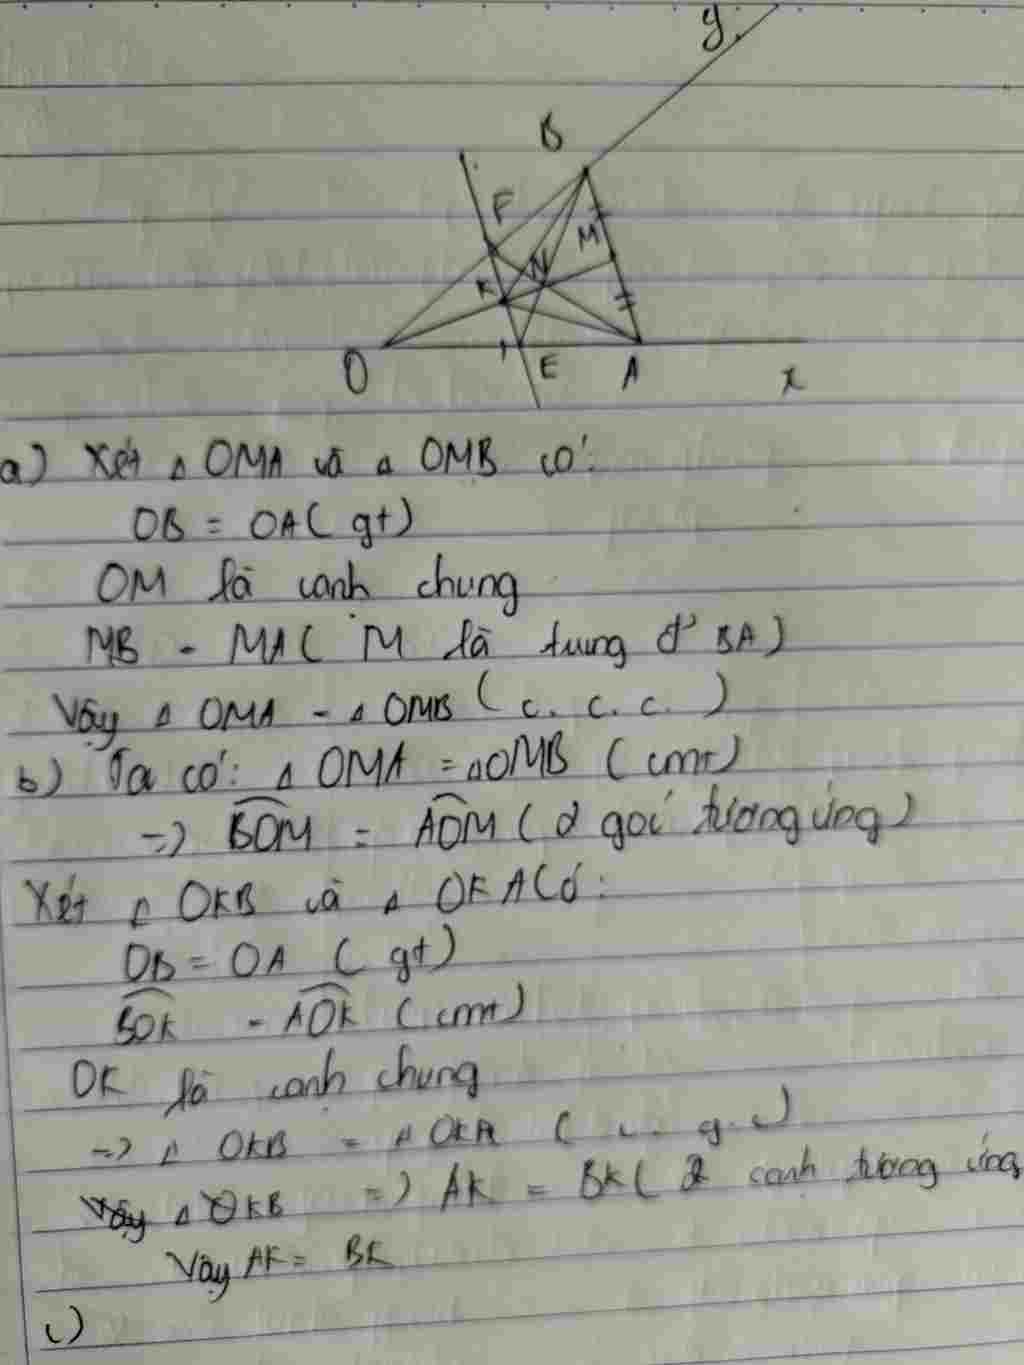 y
B
F
M
N
K
O
E
A
x
a) Xét △ OMA và △ OMB có:
OB = OA ( gt)
OM là cạnh chung
MB = MA ( M là trung đ' BA)
Vậy △ OMA = △ OMB ( c. c. c. )
b) Ta có: △ OMA = △OMB ( cmt)
=> BOM = AOM ( 2 goí tương ứng)
Xét △ OKB và △ OKA Có:
OB = OA ( gt)
BOK = AOK ( cmt)
OK là cạnh chung
=> △ OKB = △ OKA ( c. g. c)
Vậy △ OKB => AK = BK ( 2 cạnh tương ứng
Vậy AK = BK
c)